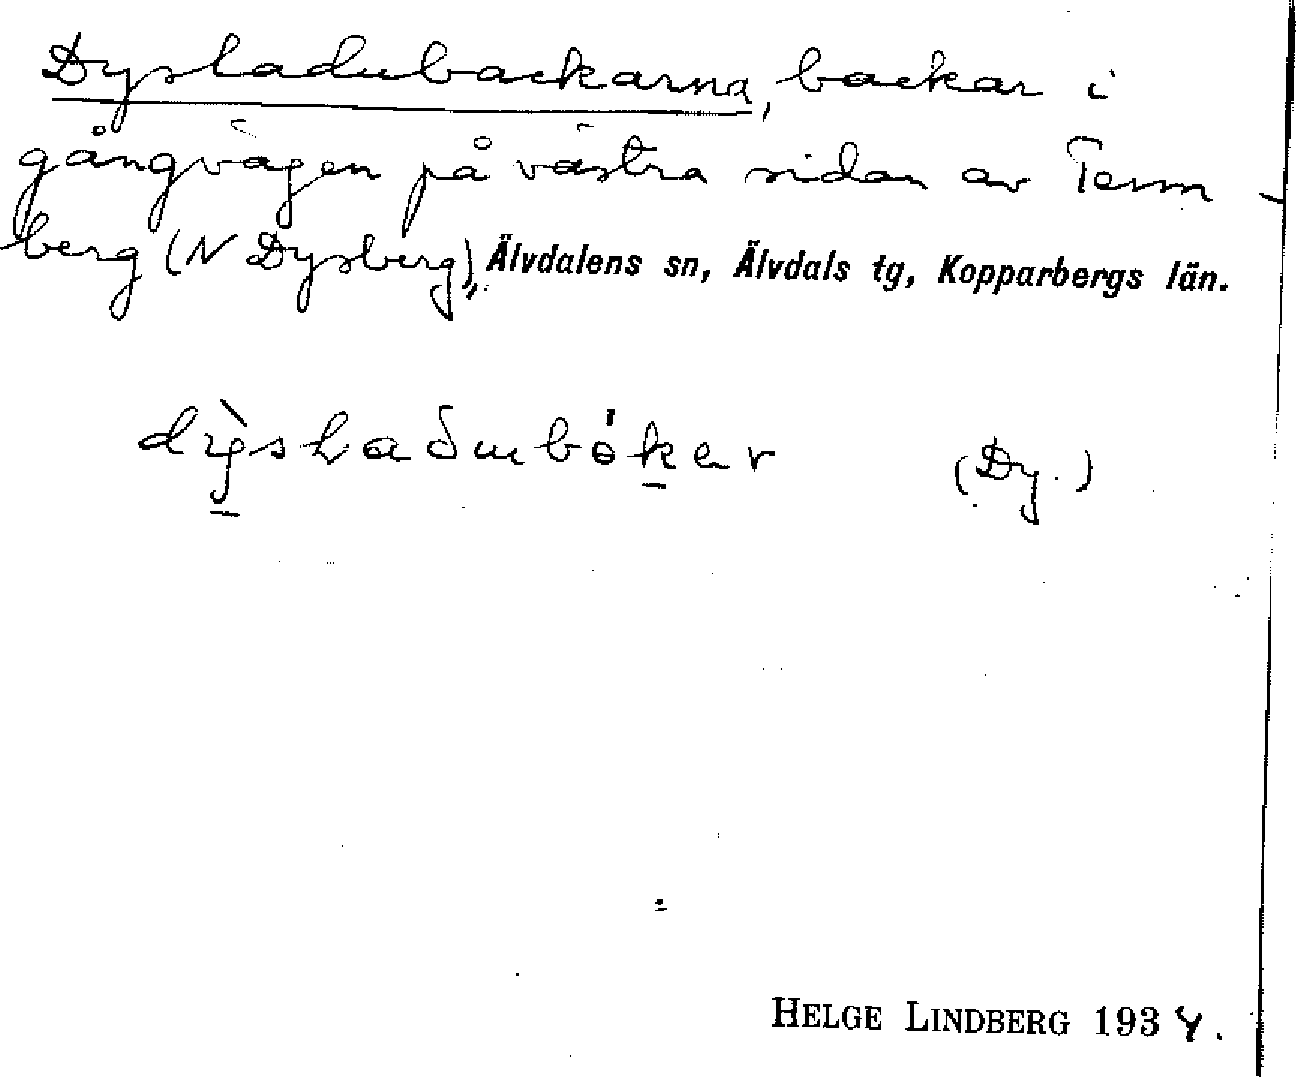 Dysladubackarna, backar i
gångvägen på västra sidan av Tenn-
berg (N Dysberg), Älvdalens sn, Älvdals tg, Kopparbergs län.
dỳsladumbóker (Dy.)
HELGE LINDBERG 1934.